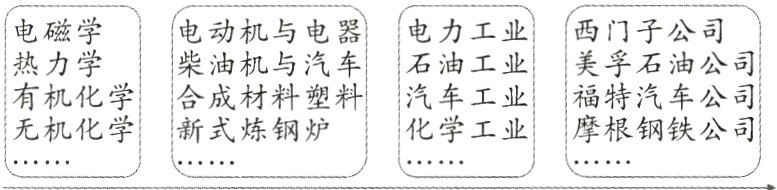 电磁学
热力学
有机化学
无机化学
……
电动机与电器
柴油机与汽车
合成材料塑料
新式炼钢炉
……
电力工业
石油工业
汽车工业
化学工业
……
西门子公司
美孚石油公司
福特汽车公司
摩根钢铁公司
……